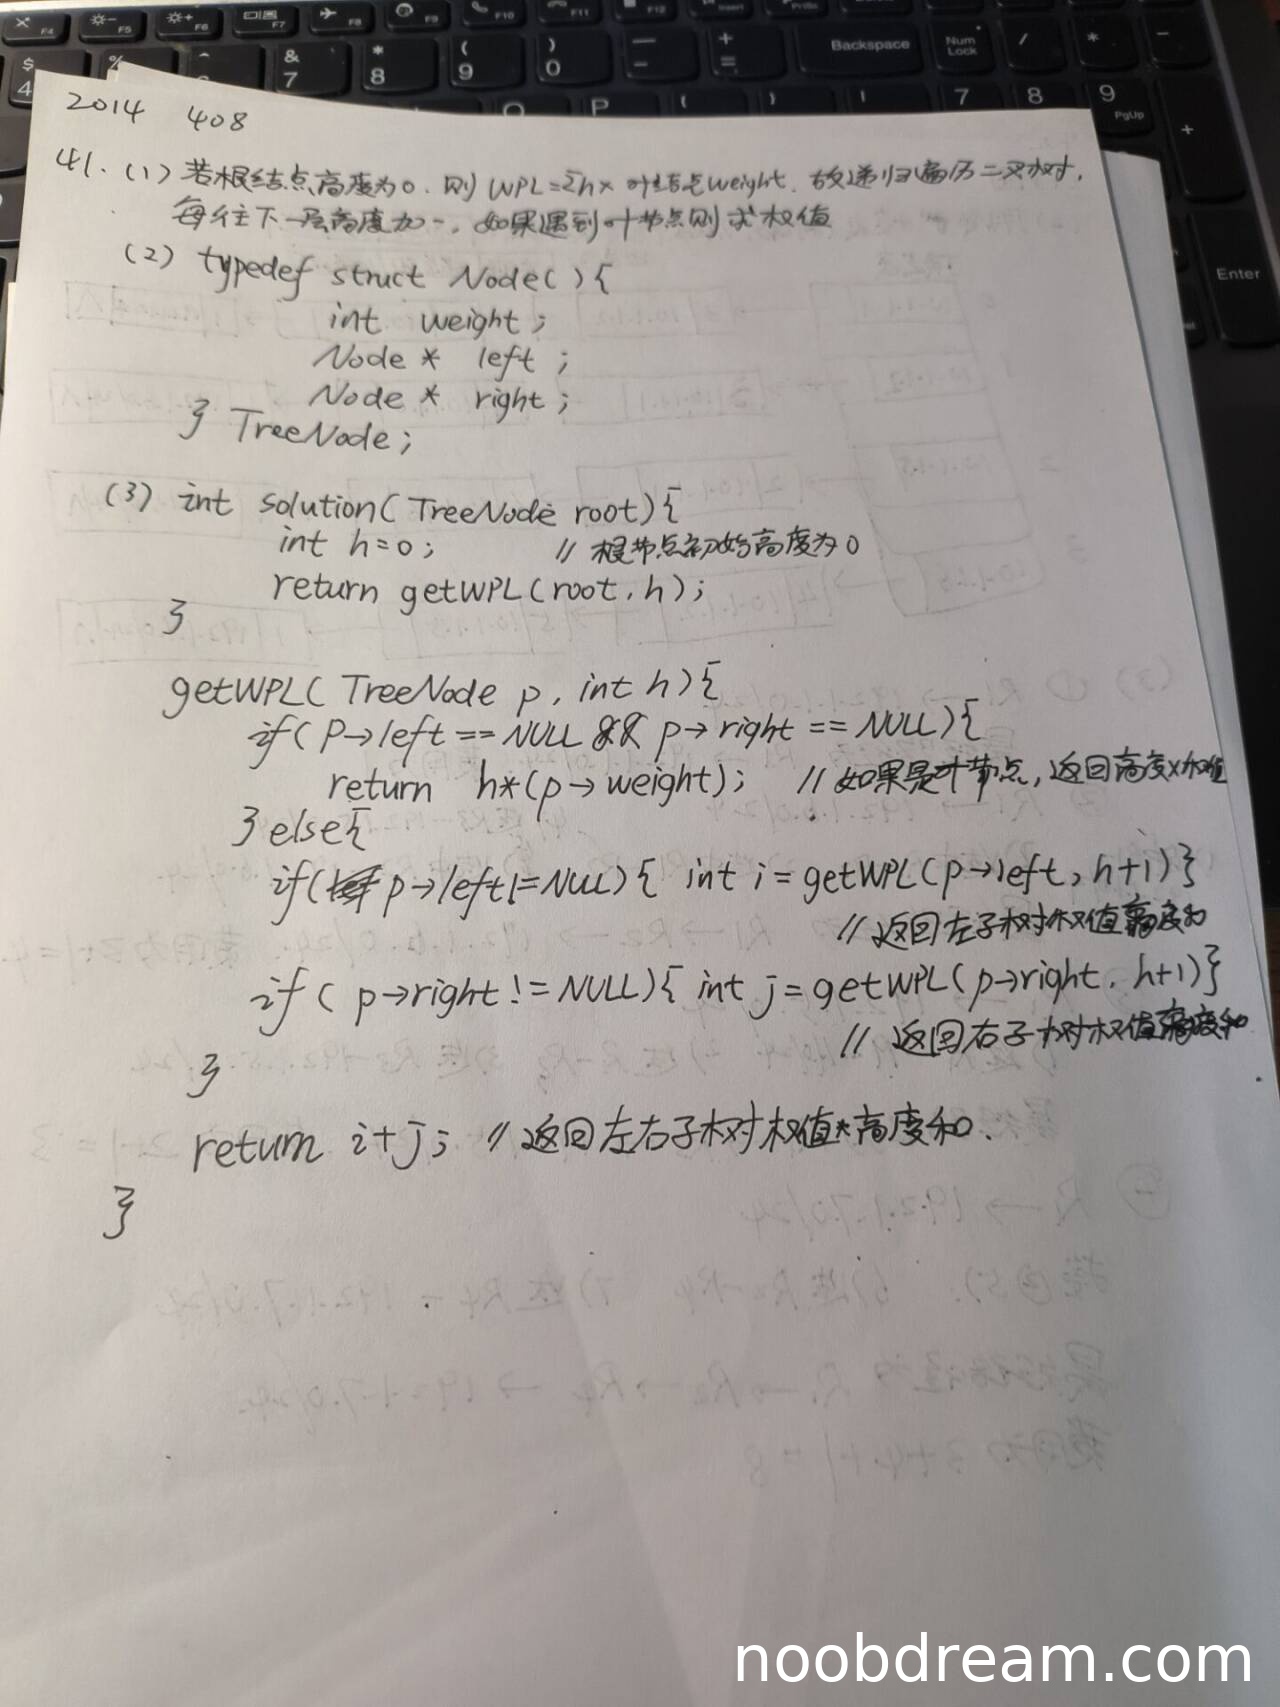 2014 408
41. (1) 若根结点高度为0, 则 WPL=Σh× 叶结点weight, 故递归遍历二叉树,
每往下一层高度加一, 如果遇到叶节点则求权值
(2) typedef struct Node(){
int weight;
Node* left;
Node* right;
} TreeNode;
(3) int solution(TreeNode root){
int h=0; // 根节点初始高度为0
return getWPL(root, h);
}
getWPL(TreeNode p, int h){
if(p→left == NULL && p→right == NULL){
return h*(p→weight); // 如果是叶节点, 返回高度×权值
}else{
if(p→left!=NULL){ int i = getWPL(p→left, h+1)}
// 返回左子树权值高度和
if(p→right!=NULL){ int j = getWPL(p→right, h+1)}
// 返回右子树权值高度和
}
return i+j; // 返回左右子树权值*高度和.
}
Backspace
Num Lock
PgUp
Enter
noobdream.com